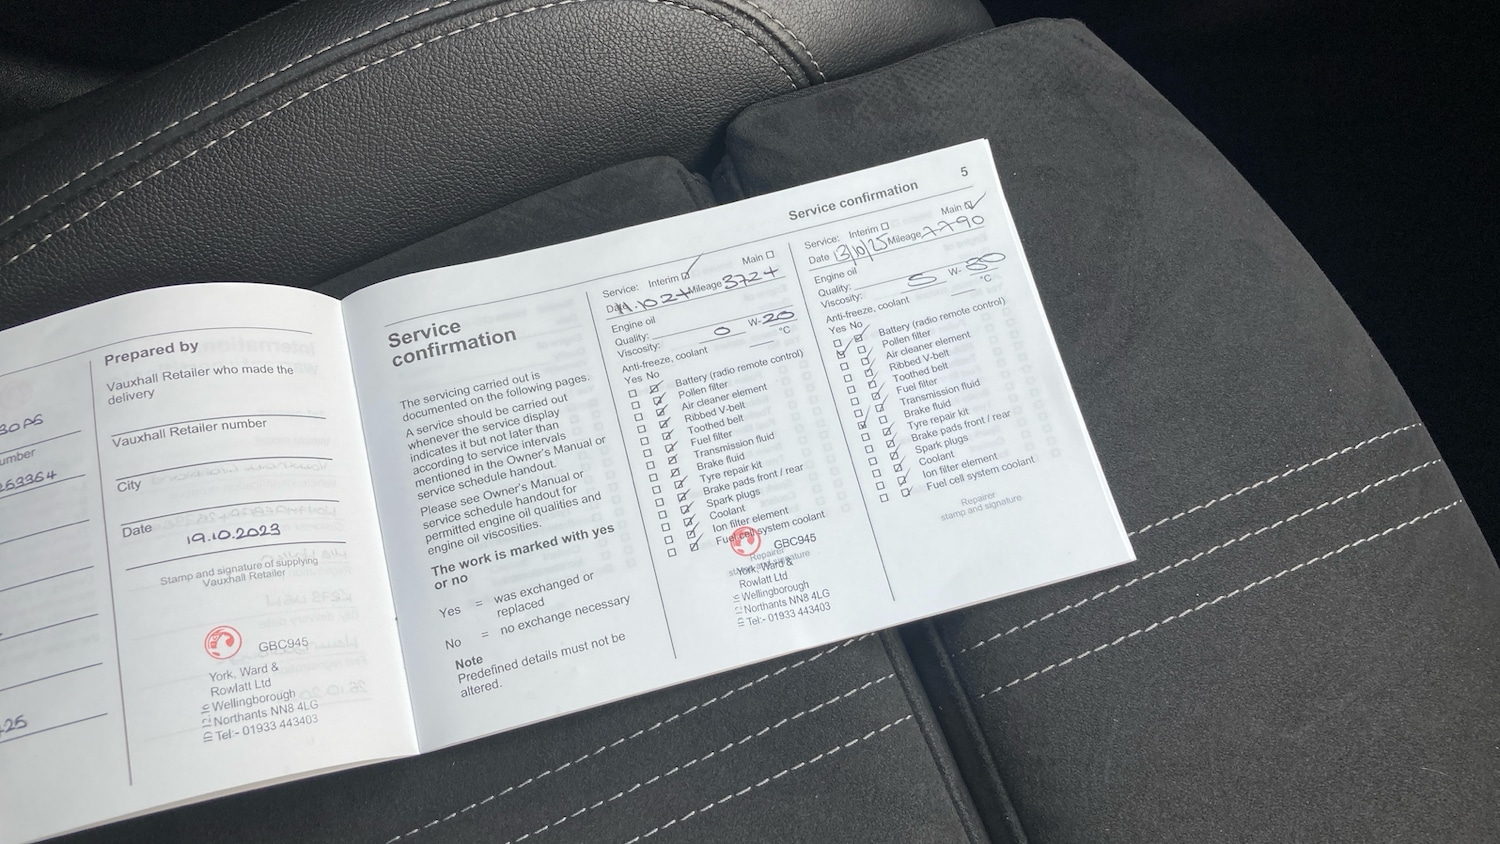 30 A6
umber
263364
25
Prepared by
Vauxhall Retailer who made the
delivery
Vauxhall Retailer number
City
Date
19.10.2023
Stamp and signature of supplying
Vauxhall Retailer
GBC945
York, Ward &
Rowlatt Ltd
Wellingborough
Northants NN8 4LG
Tel:- 01933 443403
Service confirmation 5
Service
confirmation
The servicing carried out is
documented on the following pages.
A service should be carried out
whenever the service display
indicates it but not later than
according to service intervals
mentioned in the Owner's Manual or
service schedule handout.
Please see Owner's Manual or
service schedule handout for
permitted engine oil qualities and
engine oil viscosities.
The work is marked with yes
or no
Yes = was exchanged or
replaced
No = no exchange necessary
Note
Predefined details must not be
altered.
Service: Interim Main
Date 11.10.24 Mileage 3724
Engine oil
Quality:
Viscosity: 0 W- 20
Anti-freeze, coolant °C
Yes No
Battery (radio remote control)
Pollen filter
Air cleaner element
Ribbed V-belt
Toothed belt
Fuel filter
Transmission fluid
Brake fluid
Tyre repair kit
Brake pads front / rear
Spark plugs
Coolant
Ion filter element
Fuel cell system coolant
Repairer
stamp and signature
GBC945
York, Ward &
Rowlatt Ltd
Wellingborough
Northants NN8 4LG
Tel:- 01933 443403
Service: Interim Main
Date 13/10/25 Mileage 7790
Engine oil
Quality:
Viscosity: 5 W- 30
Anti-freeze, coolant °C
Yes No
Battery (radio remote control)
Pollen filter
Air cleaner element
Ribbed V-belt
Toothed belt
Fuel filter
Transmission fluid
Brake fluid
Tyre repair kit
Brake pads front / rear
Spark plugs
Coolant
Ion filter element
Fuel cell system coolant
Repairer
stamp and signature